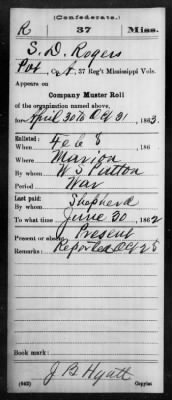 (Confederate.)
R 37 Miss.
S. D. Rogers
Pvt, Co. A, 37 Reg't Mississippi Vols.
Appears on
Company Muster Roll
of the organization named above,
for April 30 to Oct 31, 1863.
Enlisted:
When Feb 8, 186
Where Marion
By whom W. S. Patton
Period War
Last paid:
By whom Shepherd
To what time June 30, 1862
Present or absent Present
Remarks: Reported Oct 25
Book mark:
J B Hyatt
(642) Copyist.